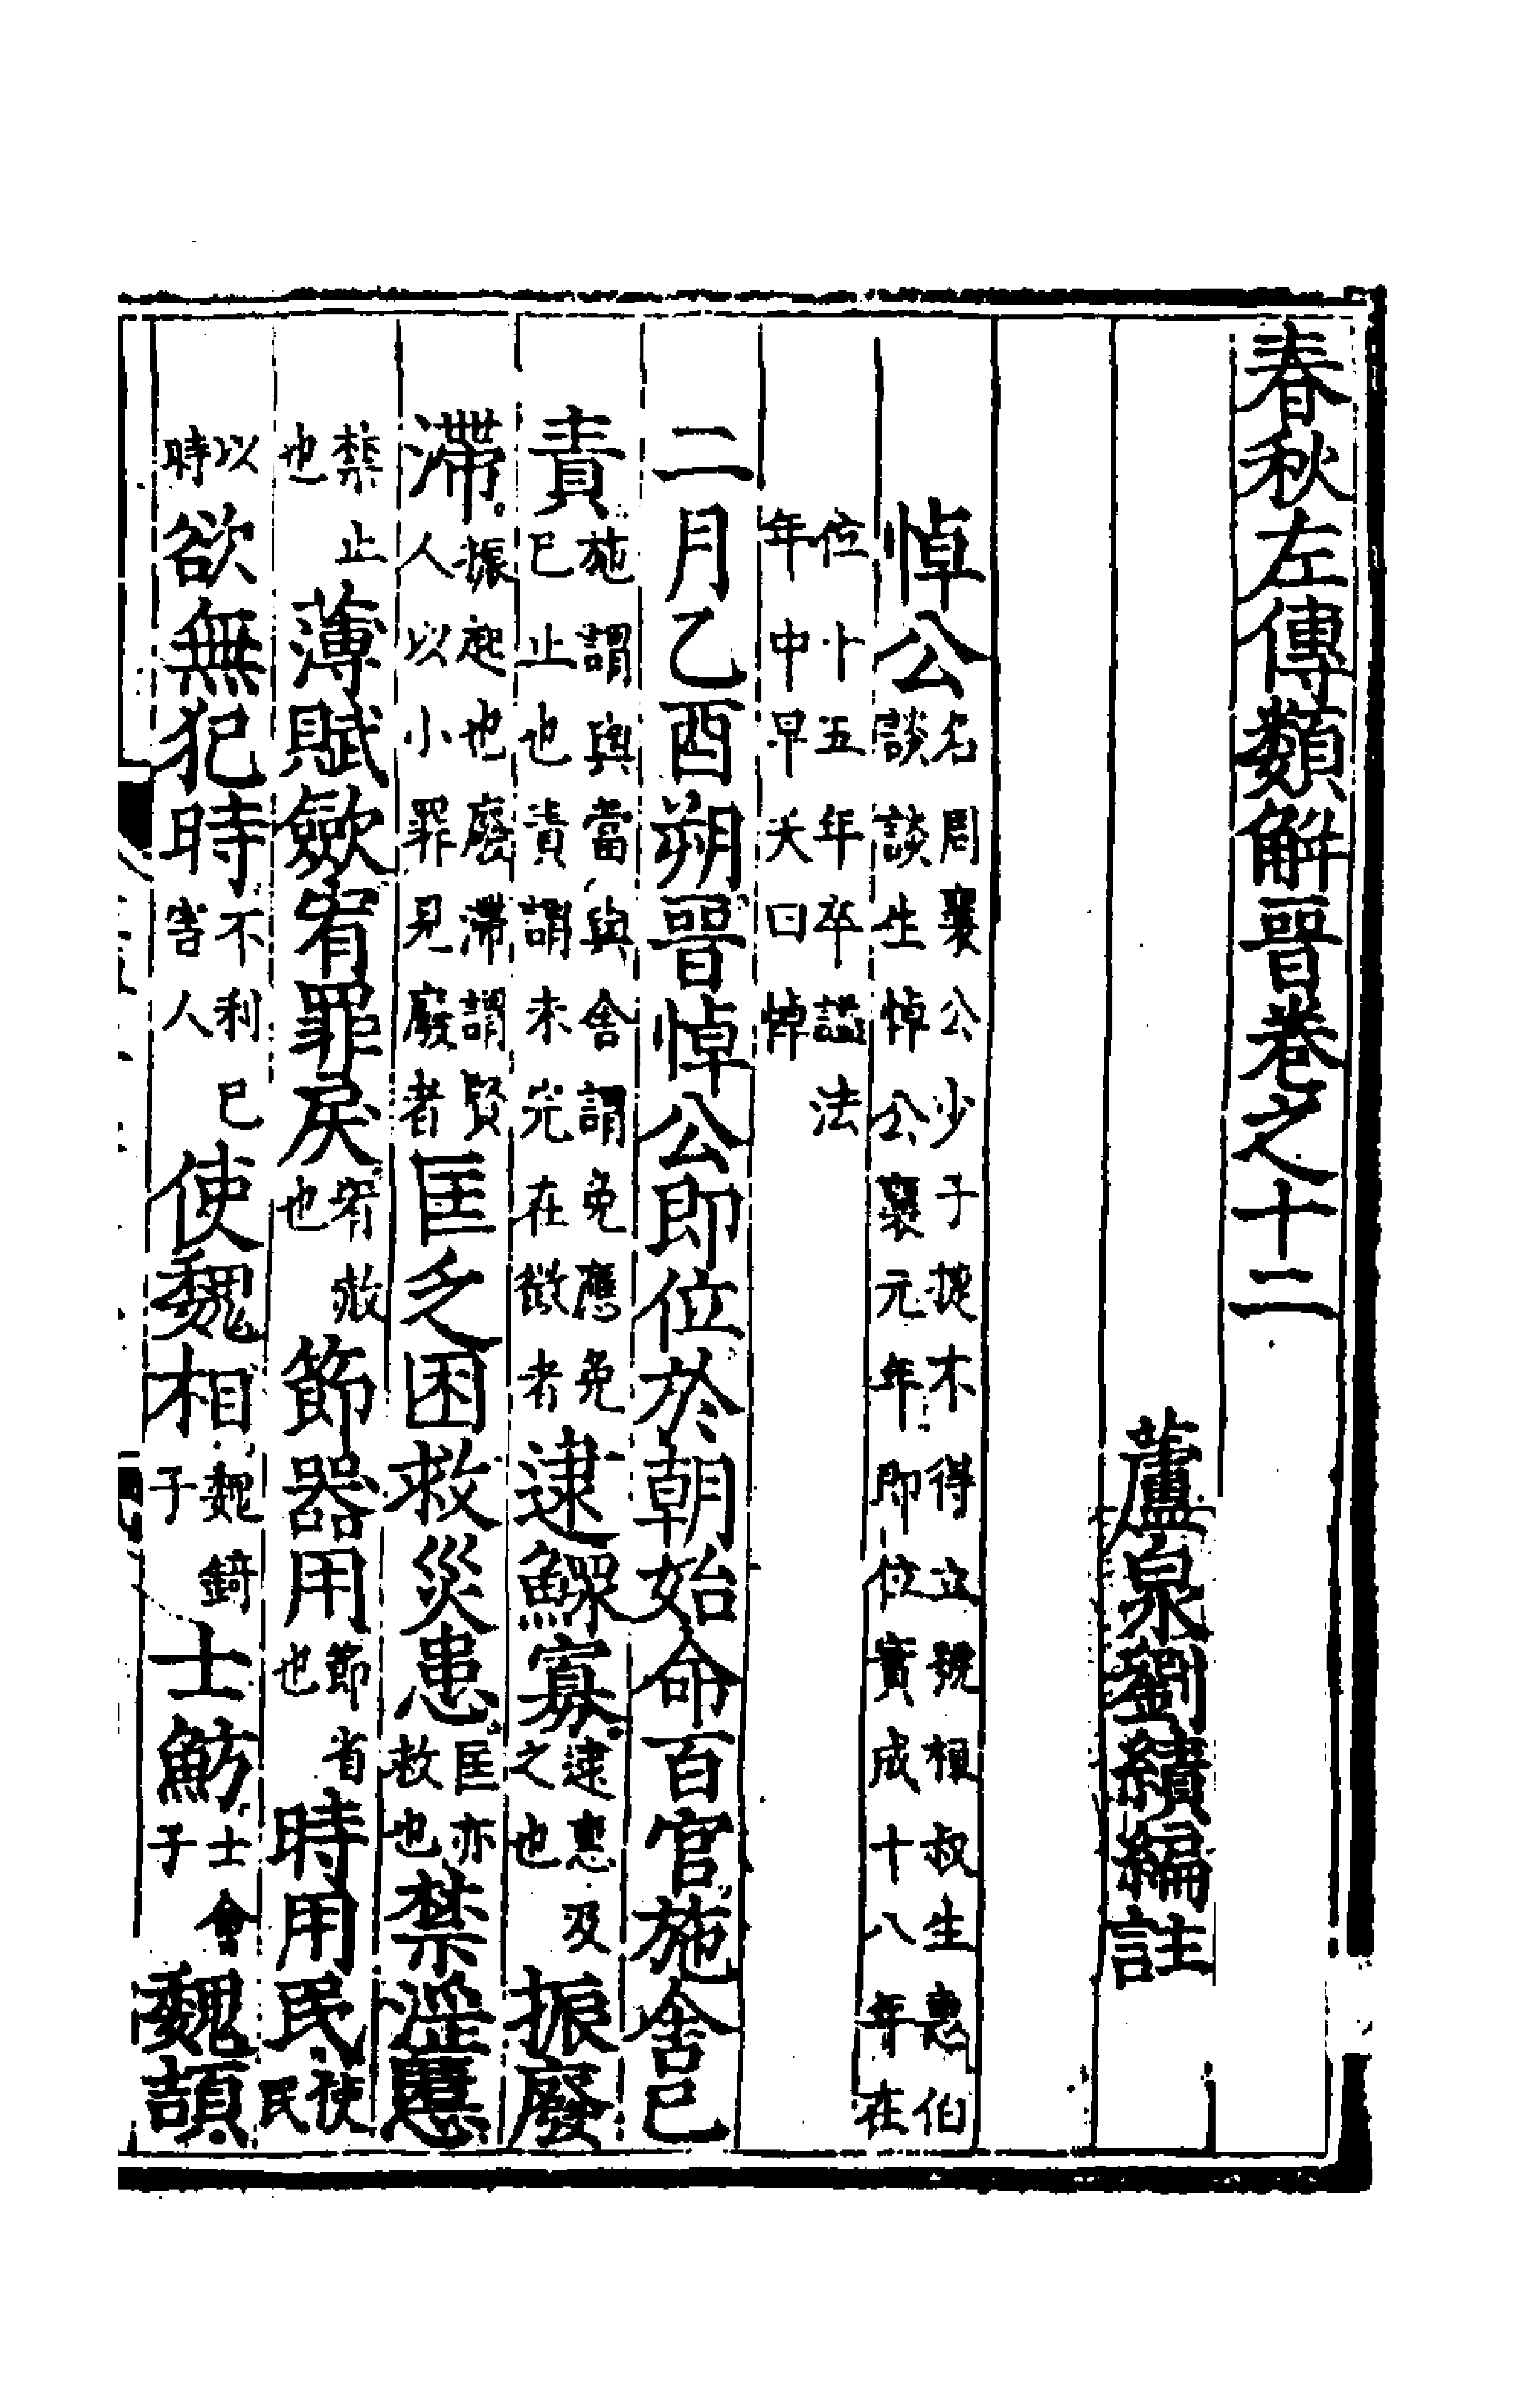 春秋左傳類解晉卷之十二
蘆泉劉績編註
悼公名周襄公少子捷木得立號桓叔生惠伯談談生悼公襄元年即位實成十八年在
位十五年卒諡法年中早夭曰悼
二月乙酉朔晉悼公即位於朝始命百官施舍已
責施謂與當與舍謂免應免已止也責謂未完在徵者逮鰥寡逮惠及之也振廢
滯振起也廢滯謂賢人以小罪見廢者匡乏困救災患匡亦救也禁淫慝
禁止也薄賦歛宥罪戾宥赦也節器用節省也時用民使民
以時欲無犯時不利己害人使魏相魏錡子士魴士會子魏頡